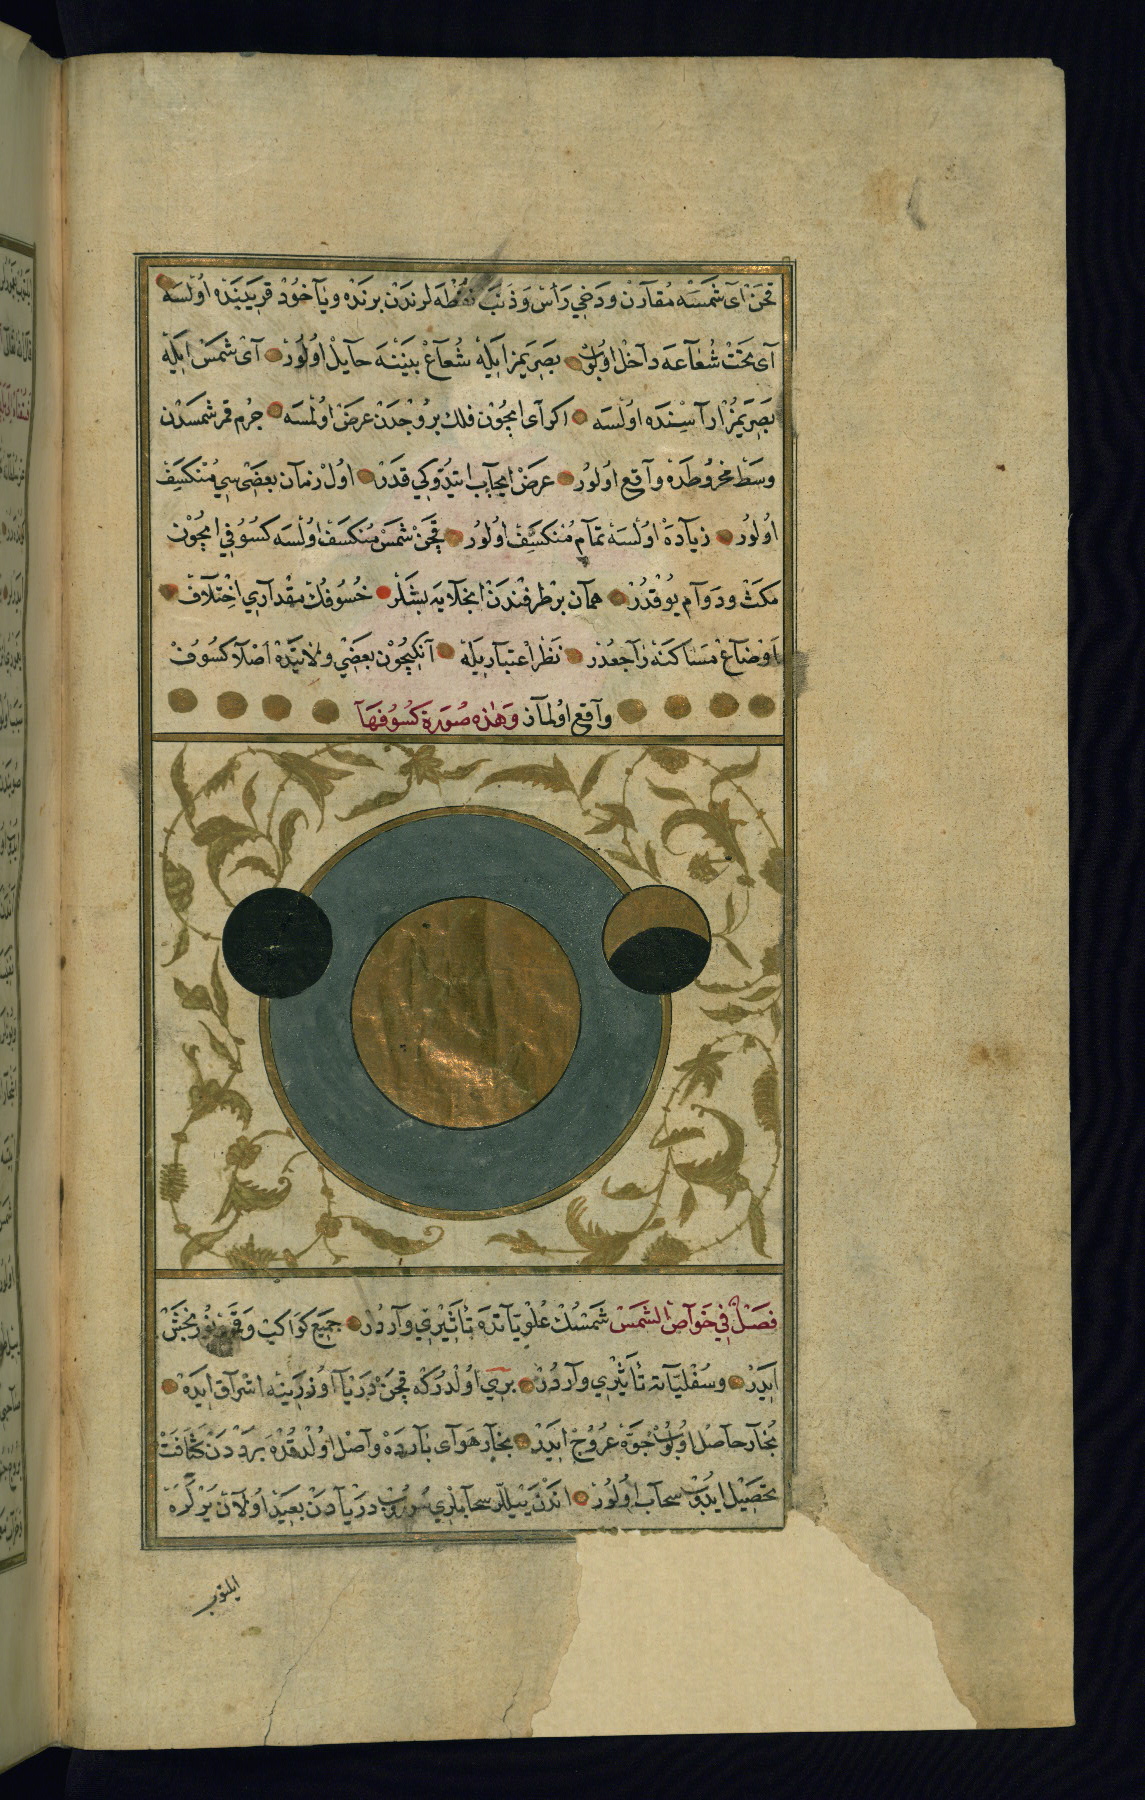 قچن آی شمسه مقارن ودخی رأس وذنب نقطه لرندن برنده ویا خود قریبنده اولسه
آی تحت شعاعه داخل اولوب بصریمز ایله شعاع بیننه حایل اولور آی شمس ایله
بصریمز اراسنده اولسه اکر آی ایچون فلك بروجدن عرض اولمسه جرم قمر شمسدن
وسط مخروطده واقع اولور عرض ایجاب ایتدوکی قدر اول زمان بعضیسی منکسف
اولور زیاده اولسه تمام منکسف اولور قچن شمس منکسف اولسه کسوفی ایچون
مکث ودوام یوقدر همان بر طرفندن انجلایه بشلر خسوفك مقداری اختلاف
اوضاع مساکنه راجعدر نظر اعتباریله آنکیچون بعضی ولایتده اصلا کسوف
واقع اولماز وهذه صورة کسوفها
فصل في خواص الشمس شمسك علویاتده تأثیری واردر جمیع کواکب وقمره نور بخش
ایدر وسفلیاته تأثیری واردر بری اولدرکه قچن دریا اوزرینه اشراق ایده
بخار حاصل اولوب جوه عروج ایدر بخار هوای بارده واصل اولدقده برددن کثافت
تحصیل ایدوب سحاب اولور اندن ییللر سحابلری سوروب دریادن بعید اولان یرلره
ایلتوب